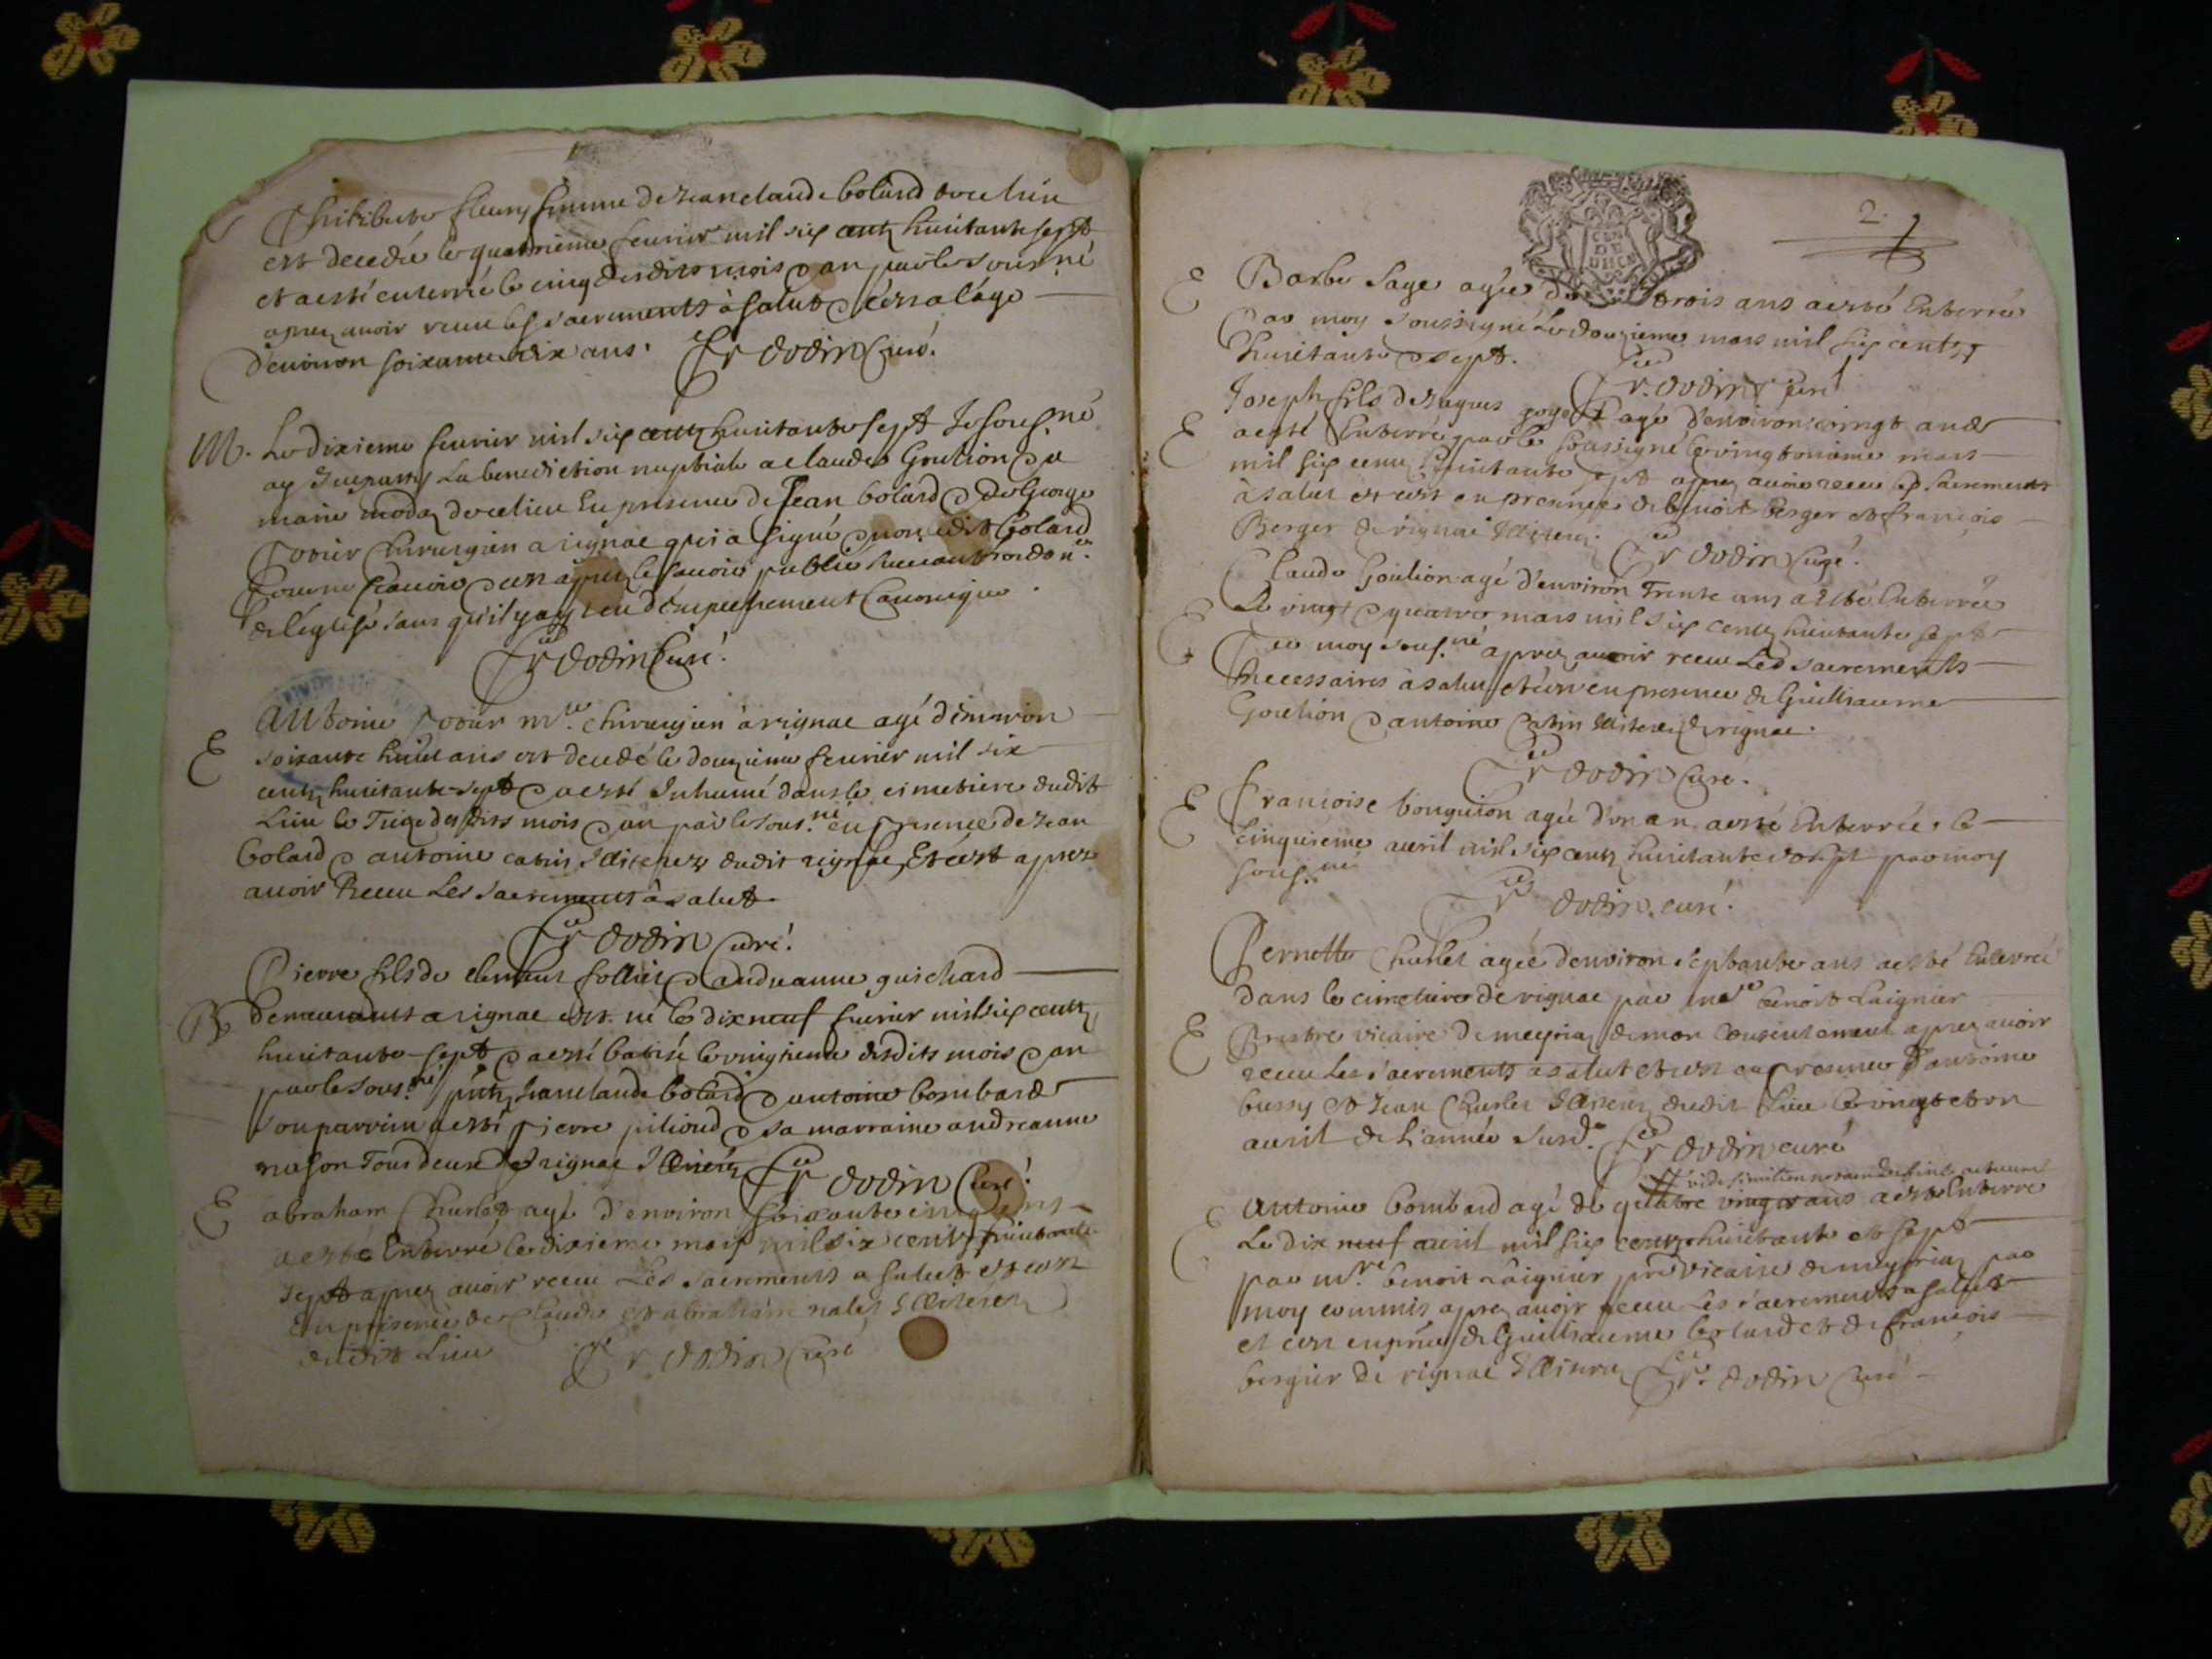 Philiberte fleury femme de Jean claude bolard dece lieu
est decedée le quatrieme feurier mil six centz huictante sept
et aesté enterré le cinq desdits mois & an par le sousné
aprez auoir receu les sacrements à salut & c'est a l'âge
d'enuiron soixante dix ans. fr dodin Curé.
M. Le dixieme feurier mil six centz huictante sept Je sousné
ay Imparty La benediction nuptiale a claude Goulion & a
marie modaz de ce lieu En presence de Jean bolard & de George
chirurgien a rignac qui a signé & non ledit bolard
pour ne scauoir & c'en aprez le scauoir publié
de l'eglise sans qu'il y ayt eu d'empeschement Canonique.
fr dodin Curé.
E Antoine mre chirurgien à rignac agé d'enuiron
soixante huict ans est decedé le douzieme feurier mil six
centz huictante sept & aesté Inhumé dans le cimetiere dudit
Lieu le Treize desdits mois & an par le sousné en presence de Jean
bolard & antoine catin Illiterez dudit rignac, Et c'est aprez
auoir Receu Les sacrements à salut
fr dodin Curé.
Pierre fils de clement follier & andreanne guichard
B demeurants a rignac est né le dix neuf feurier mil six centz
huictante-sept & aesté batisé le vingtieme desdits mois & an
par le sousné pntz Jean claude bolard & antoine bombard
son parrein aesté pierre pilioud & sa marraine andreanne
nason Tous deux de rignac Illiterez fr dodin Curé.
E abraham Churlet agé d'enuiron soixante cinq ans
aesté Enterré le dixieme mars mil six centz huictante
sept aprez auoir receu Les sacrements a salut et c'est
En presence de Claude et abraham nalet Illiterez
dudit Lieu fr dodin Curé
2.
CEN
DU
E Barbe Sage agée de trois ans aesté Enterrée
Par moy soussigné Le douzieme mars mil six centz
huictante & sept.
fr. dodin Curé
Joseph fils de Jaques agé d'enuiron vingt ans
E aesté Enterré par le soussigné le vingtonzieme mars
mil six centz huictante sept aprez auoir receu les sacrements
à salut et c'est en presence de benoit berger et francois
Berger de rignac Illiterez. fr dodin Curé.
Claude Goulion agé d'enuiron Trente ans a esté Enterrée
E Le vingt & quatre mars mil six centz huictante sept
Par moy sousné aprez auoir receu Les sacrements
necessaires à salut et c'est en presence de Guilliaume
Goulion & antoine Catin Illiterez de rignac.
fr dodin Curé.
E francoise bonguion agée d'vn an aesté Enterrée le
cinquieme auril mil six centz huictante & sept par moy
sousné
fr dodin curé.
Pernette Churlet agée d'enuiron septante ans aesté Enterrée
dans le cimetiere de rignac par mre benoit Laignier
E Prestre vicaire de meyriaz de mon consentement aprez auoir
receu Les sacrements a salut et c'est en presence d'antoine
bussy et Jean Churlet Illiterez dudit Lieu le vingt et vn
auril de L'année susd. fr dodin curé
E Antoine bombard agé de quatre vingts ans aesté Enterré
Le dix neuf auril mil six centz huictante et sept
par mre benoit Laignier pre vicaire de meyriaz par
moy commis aprez auoir receu Les sacrements a salut
et c'est en pnce de Guilliaume bolard et de francois
bergier de rignac Illiterez fr. dodin Curé